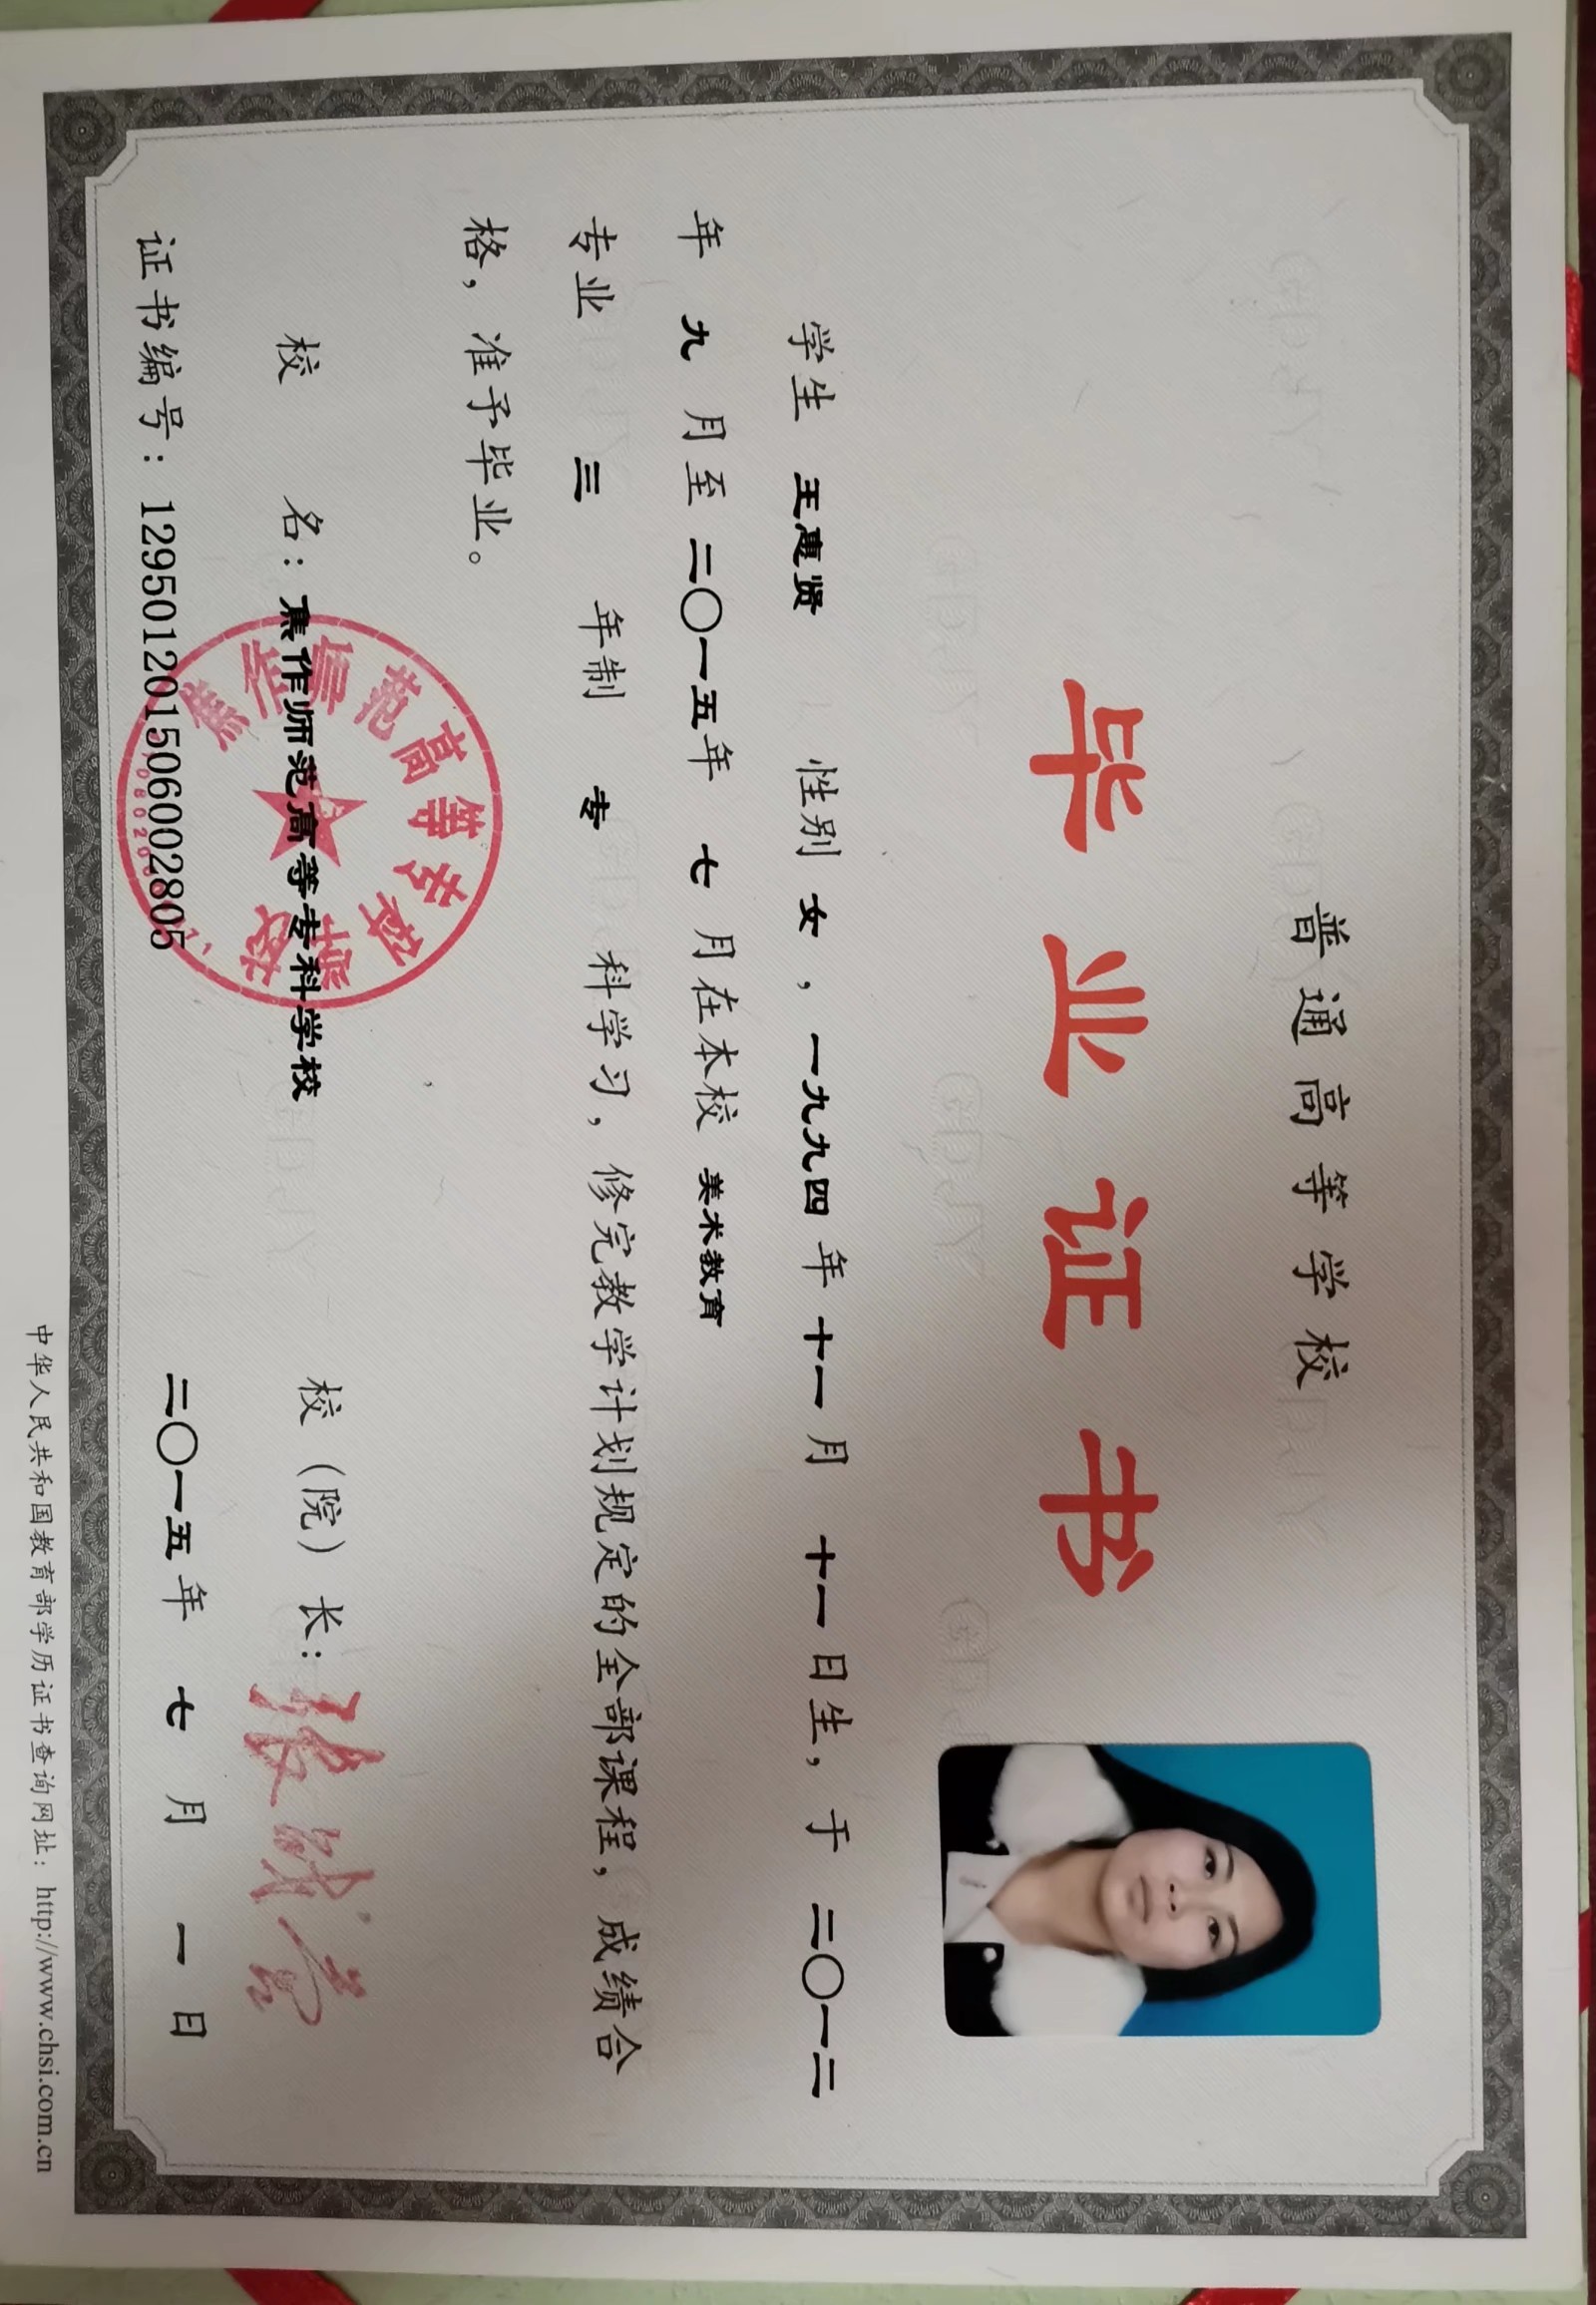 普通高等学校
毕业证书
学生 王惠贤 性别 女，一九九四年 十一 月 十一 日生，于 二〇一二
年 九 月至 二〇一五年 七 月在本校 美术教育
专业 三 年制 专 科学习，修完教学计划规定的全部课程，成绩合
格，准予毕业。
校 名：焦作师范高等专科学校 校（院）长：
证书编号：129501201506002805 二〇一五年 七 月 一 日
焦作师范高等专科学校
中华人民共和国教育部学历证书查询网址：http://www.chsi.com.cn